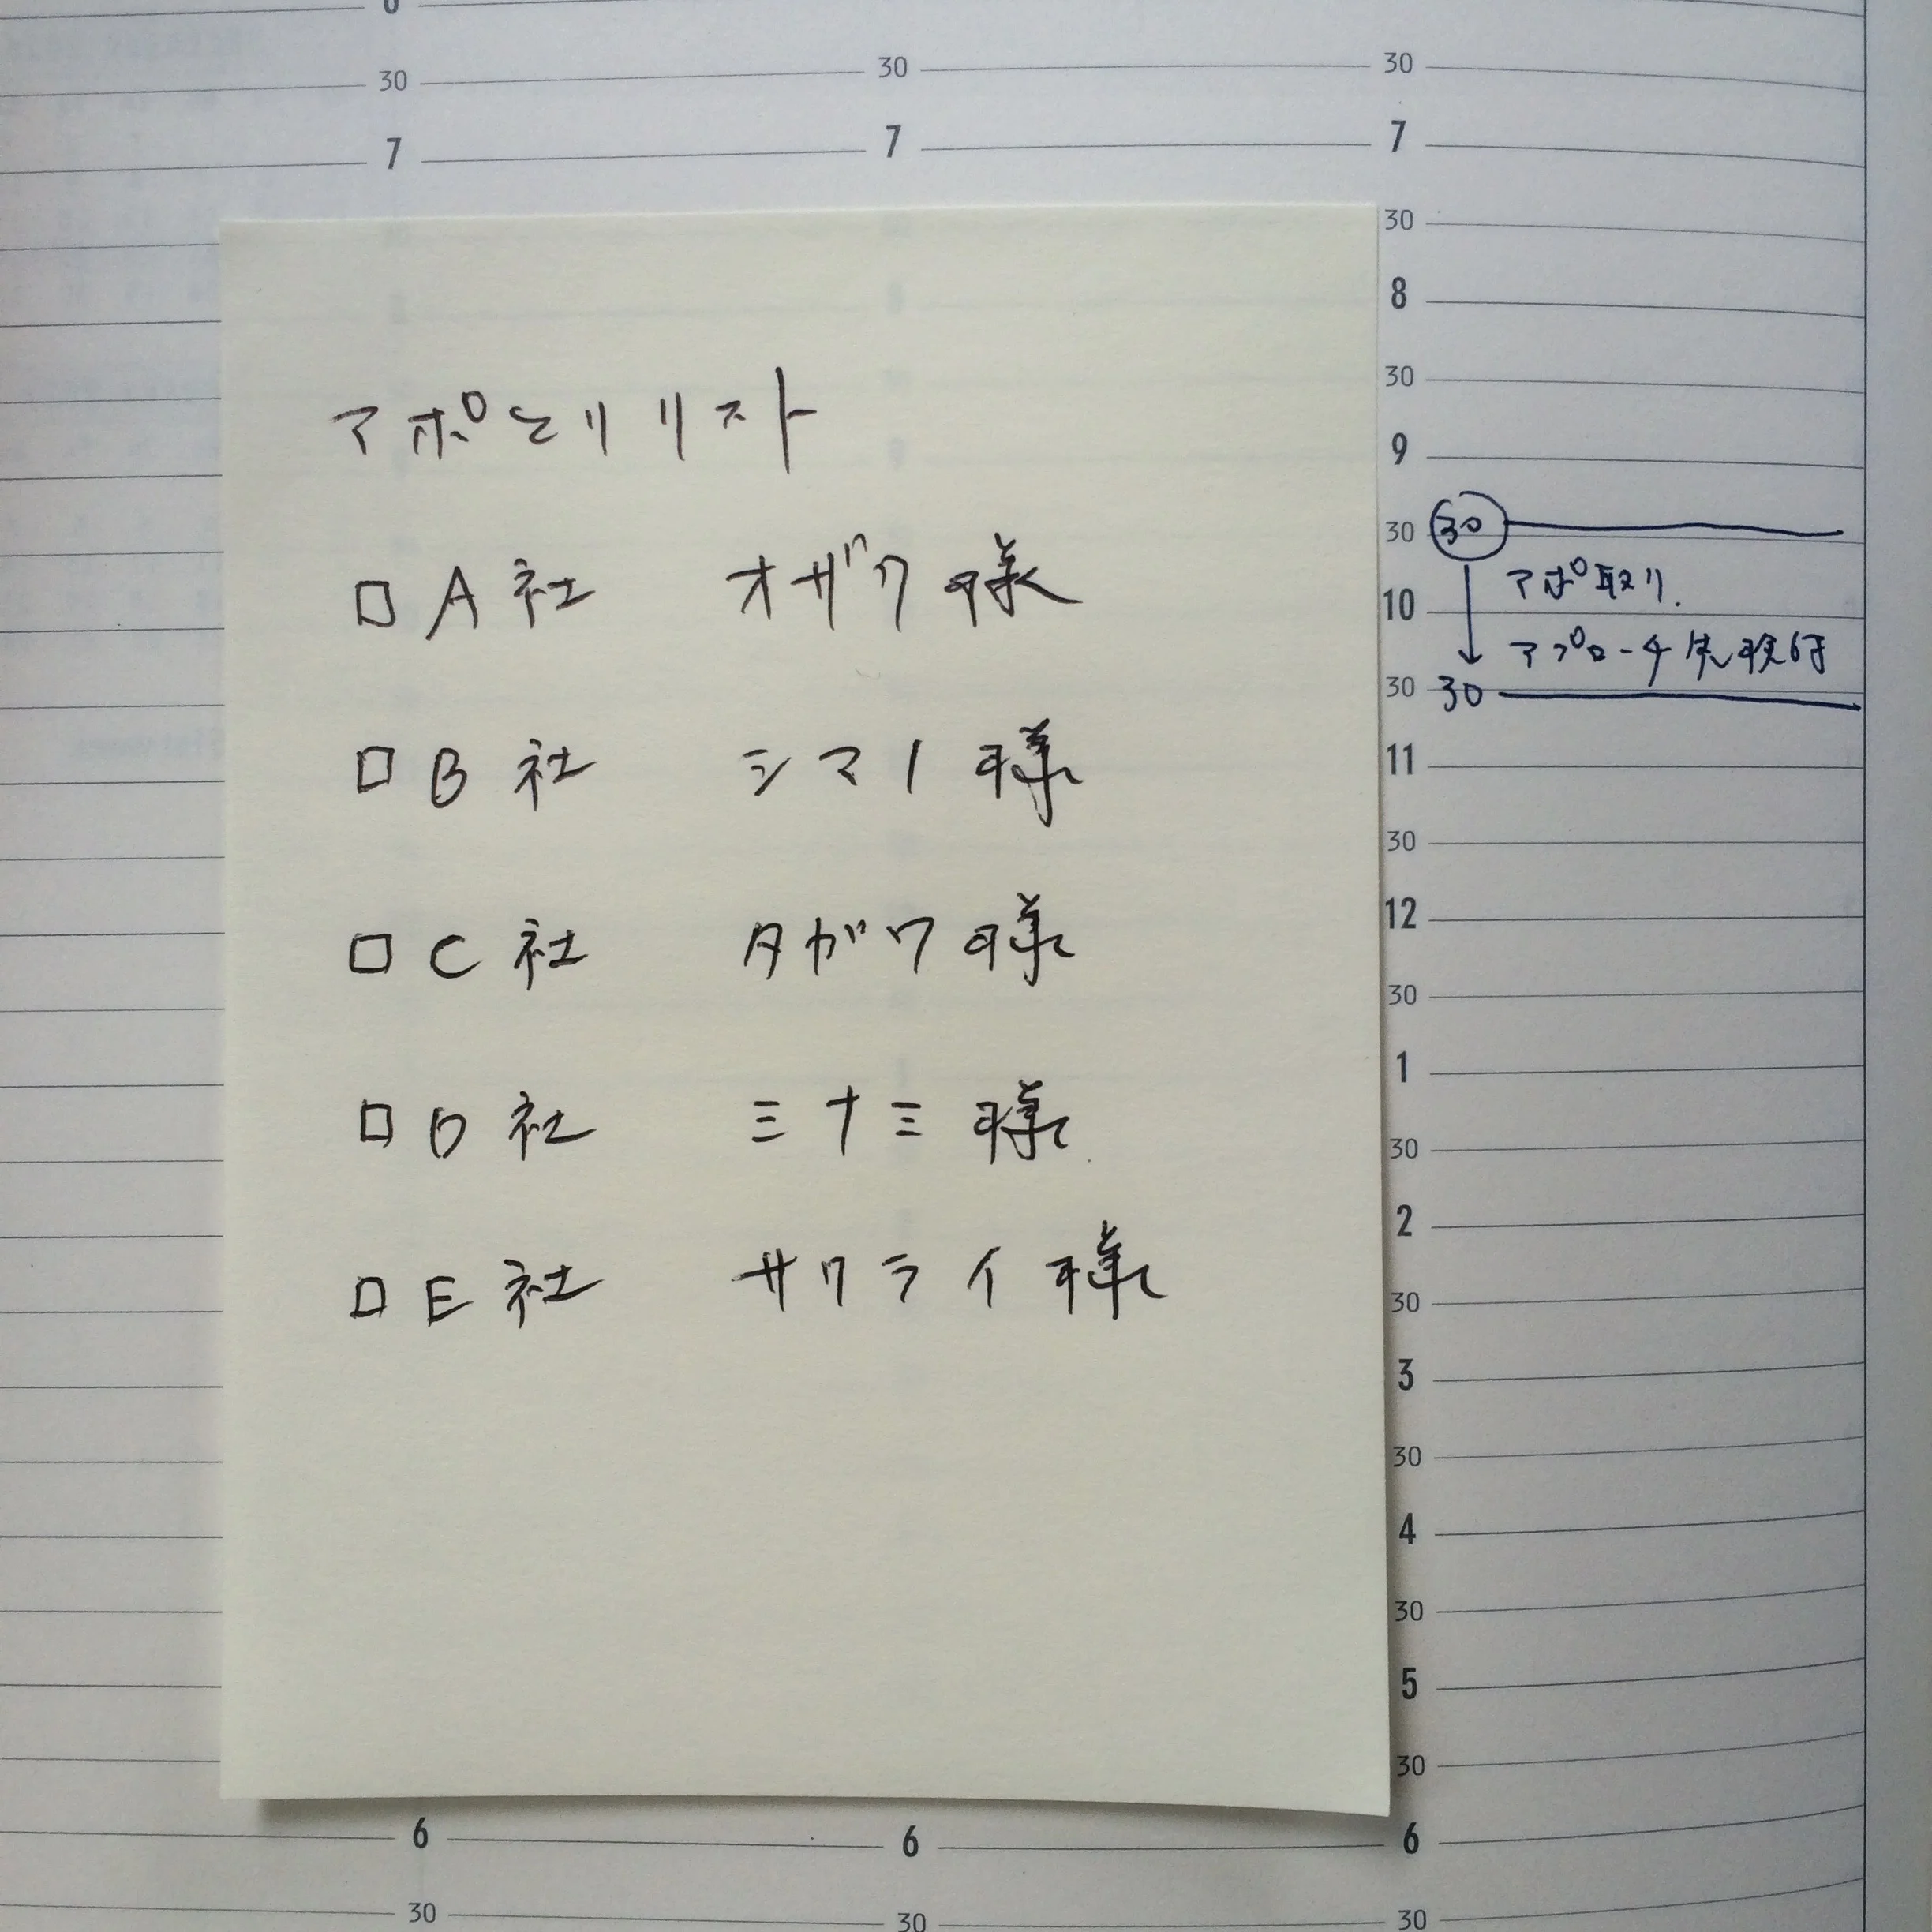 30
30
30
7
7
7
30
8
30
9
30
10
30
11
30
12
30
1
30
2
30
3
30
4
30
5
30
6
6
6
30
30
30
アポとリリスト
□ A社 オザワ様
□ B社 シマノ様
□ C社 タガワ様
□ D社 ミナミ様
□ E社 サクライ様
30
アポ取り.
アプローチ先検討
30